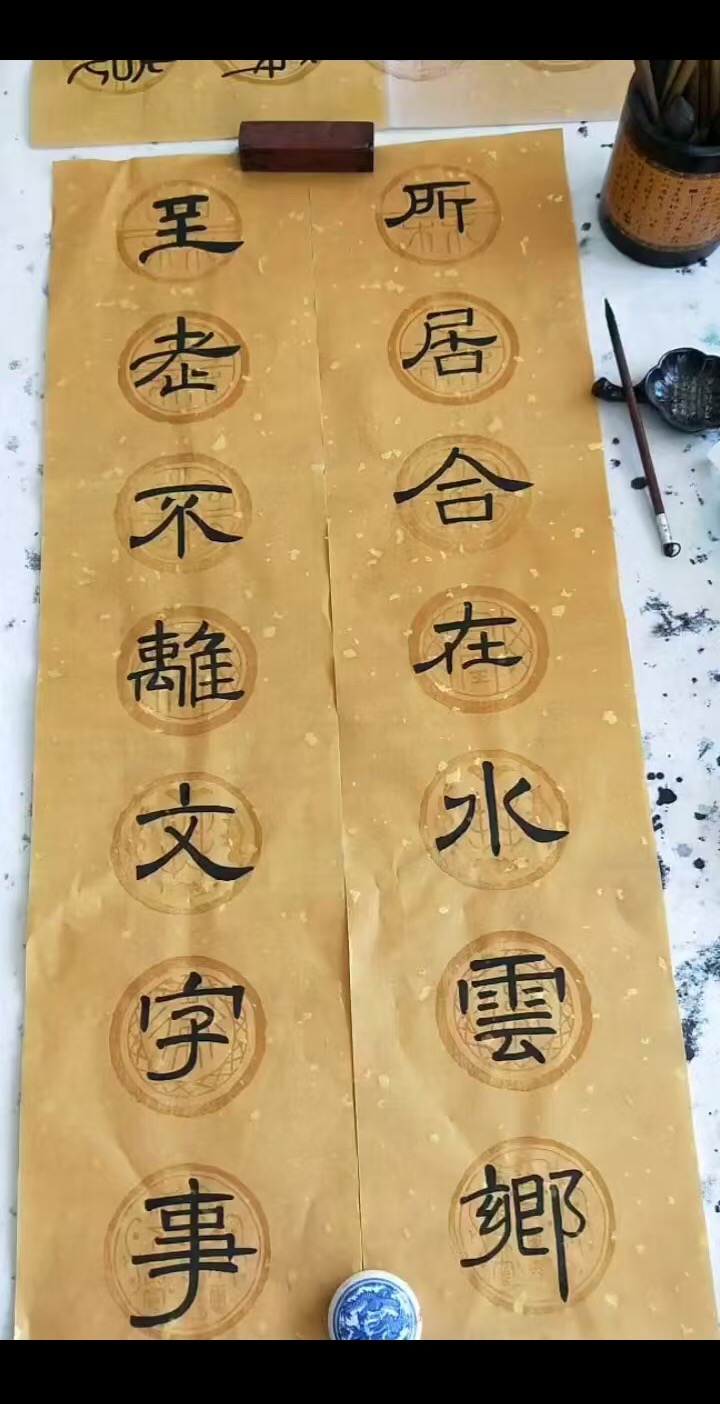 所居合在水雲鄉
至老不離文字事